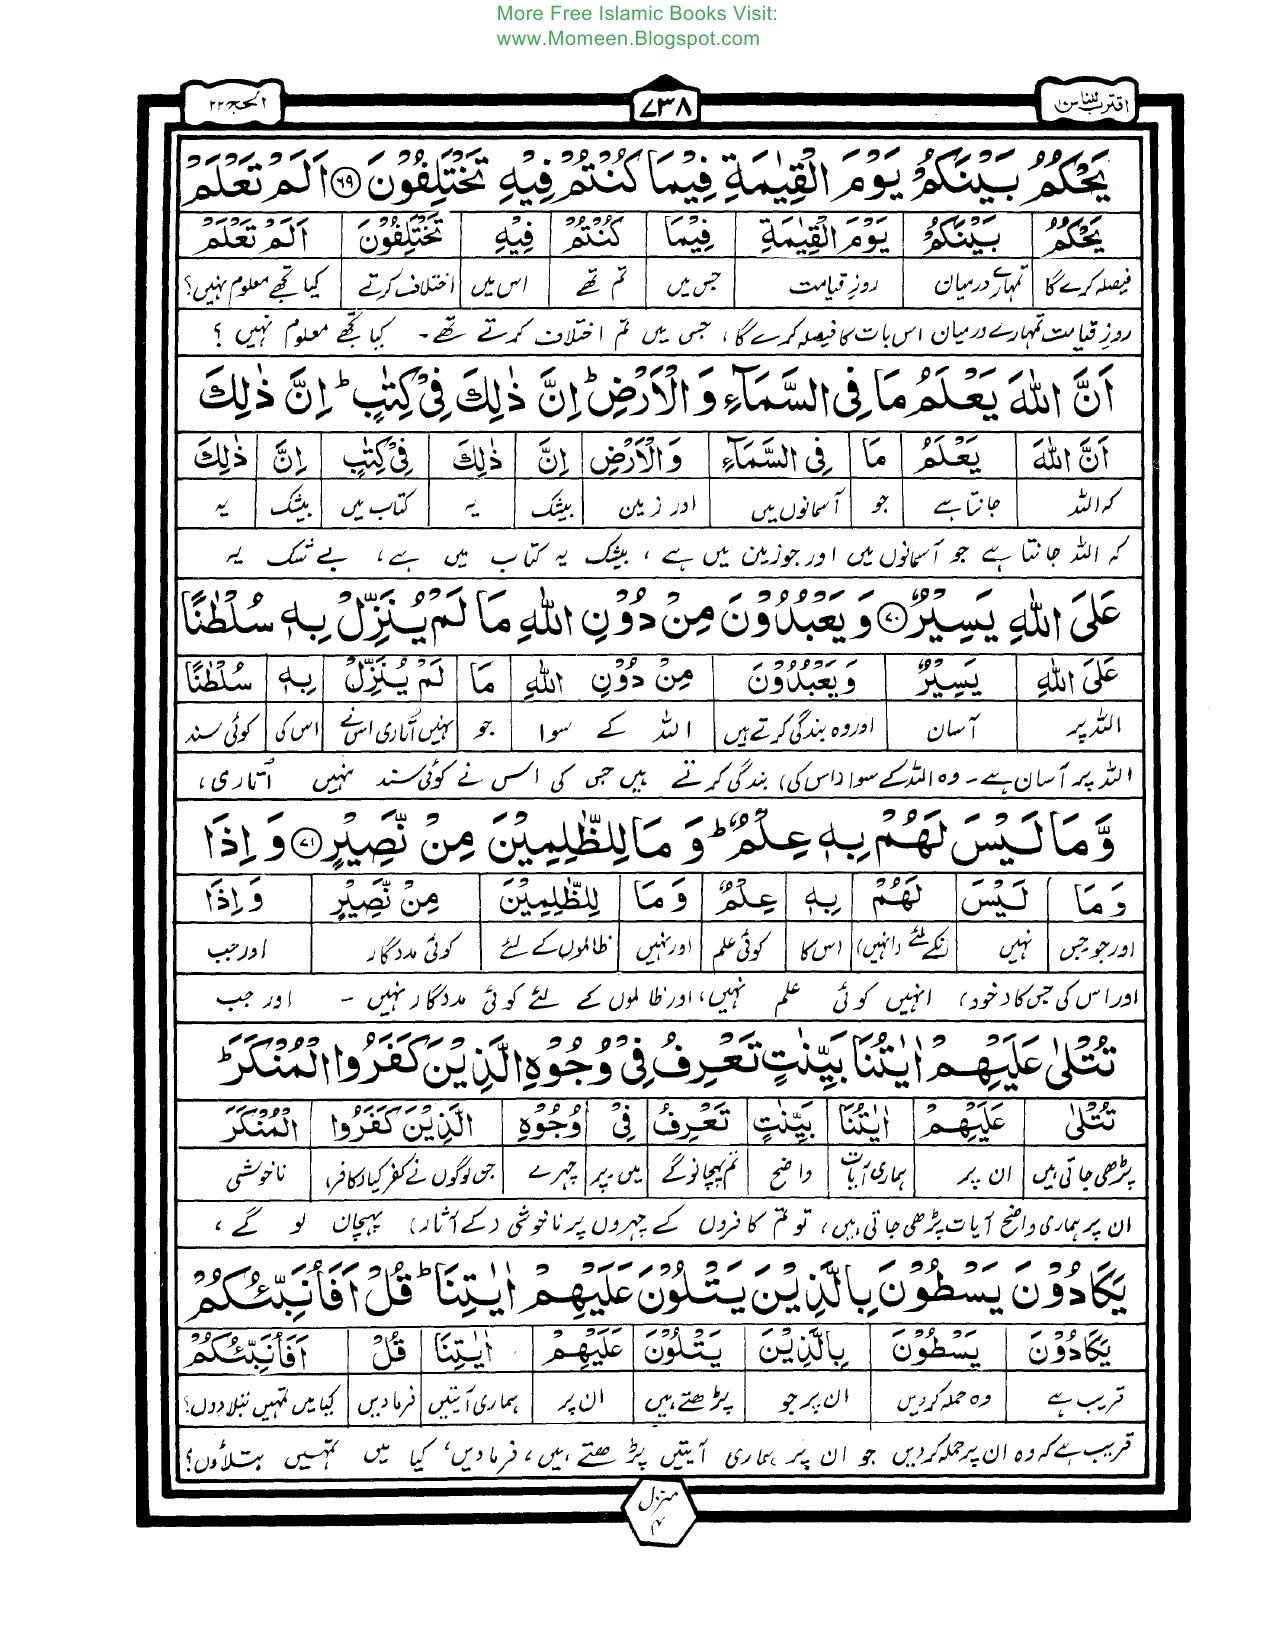 More Free Islamic Books Visit:
www.Momeen.Blogspot.com
اقترب للناس ۱۷
۷۳۸
الحج ۲۲
يَحْكُمُ بَيْنَكُمْ يَوْمَ الْقِيٰمَةِ فِيْمَا كُنْتُمْ فِيْهِ تَخْتَلِفُوْنَ ﴿۶۹﴾ اَلَمْ تَعْلَمْ
يَحْكُمُ بَيْنَكُمْ يَوْمَ الْقِيٰمَةِ فِيْمَا كُنْتُمْ فِيْهِ تَخْتَلِفُوْنَ اَلَمْ تَعْلَمْ
فیصلہ کرے گا تمہارے درمیان روزِ قیامت جس میں تم تھے اس میں اختلاف کرتے کیا تجھے معلوم نہیں؟
روزِ قیامت تمہارے درمیان اس بات کا فیصلہ کرے گا، جس میں تم اختلاف کرتے تھے۔ کیا تجھے معلوم نہیں ؟
اَنَّ اللّٰهَ يَعْلَمُ مَا فِى السَّمَآءِ وَ الْاَرْضِ ؕ اِنَّ ذٰلِكَ فِيْ كِتٰبٍ ؕ اِنَّ ذٰلِكَ
اَنَّ اللّٰهَ يَعْلَمُ مَا فِى السَّمَآءِ وَالْاَرْضِ اِنَّ ذٰلِكَ فِيْ كِتٰبٍ اِنَّ ذٰلِكَ
کہ اللہ جانتا ہے جو آسمانوں میں اور زمین بیشک یہ کتاب میں بیشک یہ
کہ اللہ جانتا ہے جو آسمانوں میں اور جو زمین میں ہے ، بیشک یہ کتاب میں ہے، بے شک یہ
عَلَى اللّٰهِ يَسِيْرٌ ﴿۷۰﴾ وَ يَعْبُدُوْنَ مِنْ دُوْنِ اللّٰهِ مَا لَمْ يُنَزِّلْ بِهٖ سُلْطٰنًا
عَلَى اللّٰهِ يَسِيْرٌ وَيَعْبُدُوْنَ مِنْ دُوْنِ اللّٰهِ مَا لَمْ يُنَزِّلْ بِهٖ سُلْطٰنًا
اللہ پر آسان اور وہ بندگی کرتے ہیں اللہ کے سوا جو نہیں اتاری اس نے اس کی کوئی سند
اللہ پر آسان ہے۔ وہ اللہ کے سوا (اس کی) بندگی کرتے ہیں جس کی اس نے کوئی سند نہیں اتاری،
وَّ مَا لَيْسَ لَهُمْ بِهٖ عِلْمٌ ؕ وَ مَا لِلظّٰلِمِيْنَ مِنْ نَّصِيْرٍ ﴿۷۱﴾ وَ اِذَا
وَمَا لَيْسَ لَهُمْ بِهٖ عِلْمٌ وَمَا لِلظّٰلِمِيْنَ مِنْ نَّصِيْرٍ وَاِذَا
اور جو جس نہیں انکے لئے (انہیں) اس کا کوئی علم اور نہیں ظالموں کے لئے کوئی مددگار اور جب
اور اس کی جس کا (خود) انہیں کوئی علم نہیں، اور ظالموں کے لئے کوئی مددگار نہیں ۔ اور جب
تُتْلٰى عَلَيْهِمْ اٰيٰتُنَا بَيِّنٰتٍ تَعْرِفُ فِيْ وُجُوْهِ الَّذِيْنَ كَفَرُوا الْمُنْكَرَ ؕ
تُتْلٰى عَلَيْهِمْ اٰيٰتُنَا بَيِّنٰتٍ تَعْرِفُ فِيْ وُجُوْهِ الَّذِيْنَ كَفَرُوا الْمُنْكَرَ
پڑھی جاتی ہیں ان پر ہماری آیات واضح تم پہچانو گے میں۔پر چہرے جن لوگوں نے کفر کیا (کافر) ناخوشی
ان پر ہماری واضح آیات پڑھی جاتی ہیں، تو تم کافروں کے چہروں پر ناخوشی (کے آثار) پہچان لو گے ،
يَكَادُوْنَ يَسْطُوْنَ بِالَّذِيْنَ يَتْلُوْنَ عَلَيْهِمْ اٰيٰتِنَا ؕ قُلْ اَفَاُنَبِّئُكُمْ
يَكَادُوْنَ يَسْطُوْنَ بِالَّذِيْنَ يَتْلُوْنَ عَلَيْهِمْ اٰيٰتِنَا قُلْ اَفَاُنَبِّئُكُمْ
قریب ہے وہ حملہ کر دیں ان پر جو پڑھتے ہیں ان پر ہماری آیتیں فرمادیں کیا میں تمہیں بتلا دوں؟
قریب ہے کہ وہ ان پر حملہ کر دیں جو ان پر ہماری آیتیں پڑھتے ہیں، فرما دیں، کیا میں تمہیں بتلاؤں؟
منزل ۴